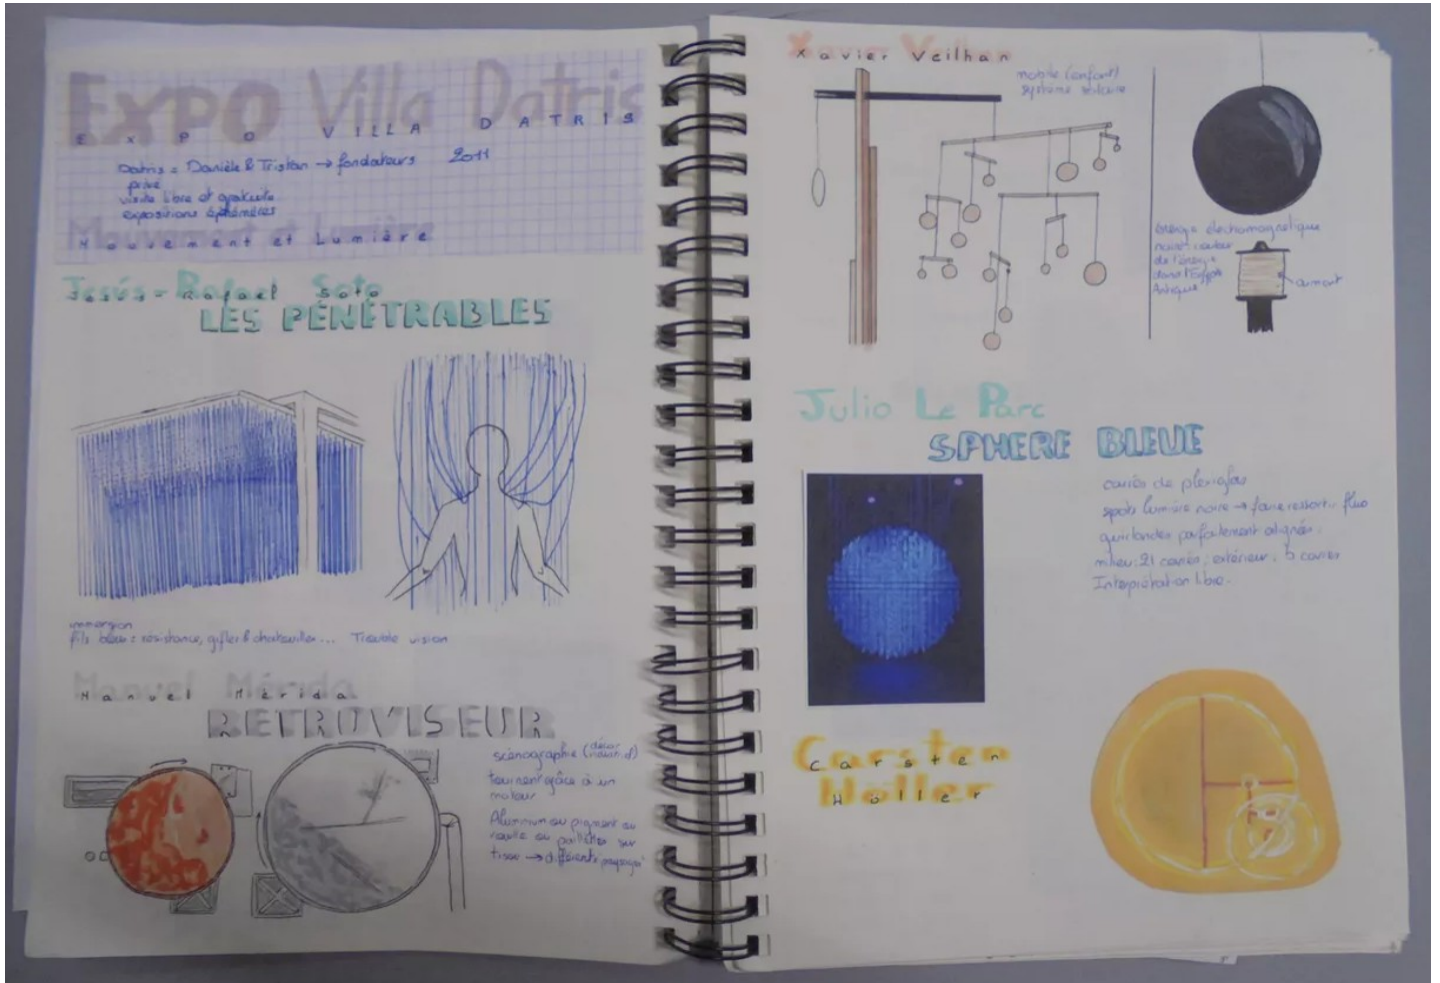 Expo Villa Datris
EXPO VILLA DATRIS
Datris = Danièle & Tristan → fondateurs 2011
privé
visite libre et gratuite
expositions éphémères
Mouvement et Lumière
Mouvement et Lumière
Jesús-Rafael Soto
Jesús-Rafael Soto
LES PÉNÉTRABLES
immersion
fils bleus = résistance, gifler & chatouiller... Trouble vision
Manuel Mérida
Manuel Mérida
RETROVISEUR
scénographie (décor industriel)
tournent grâce à un
moteur
Aluminium ou pigment ou
rouille ou paillettes sur
tisse → différents paysages
Xavier Veilhan
Xavier Veilhan
mobile (enfant)
système solaire
énergie électromagnétique
noir: couleur
de l'énergie
dans l'Egypte
Antique
aimant
Julio Le Parc
SPHERE BLEUE
carrés de plexiglas
spots lumière noire → faire ressortir fluo
guirlandes parfaitement alignés.
milieu: 21 carrés; extérieur: 5 carrés
Interprétation libre.
Carsten
Carsten
Höller
Höller